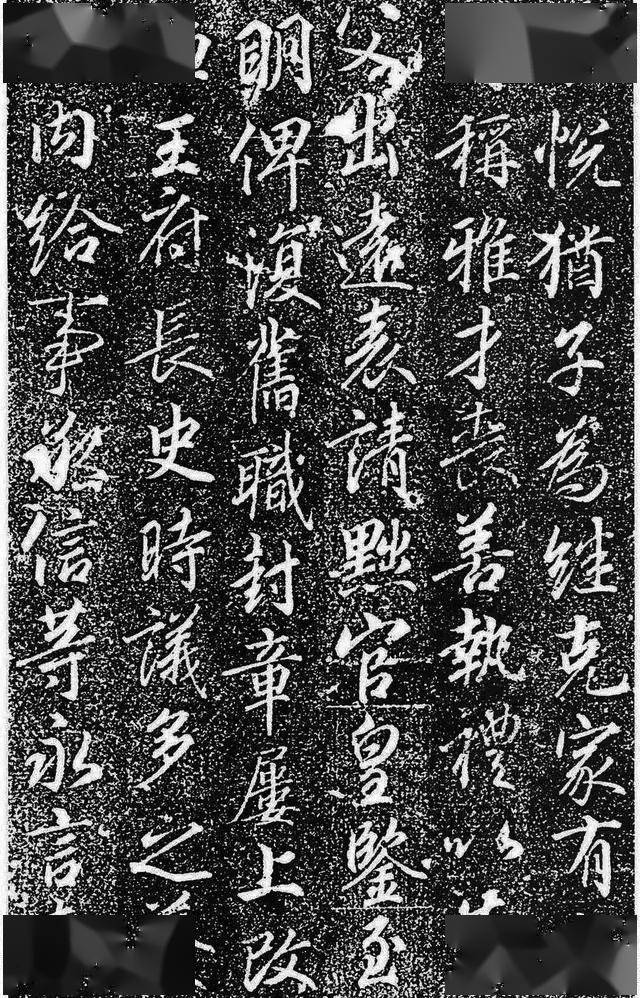 悅猶子為继克家有
稱雅才喪善執禮以
父出遠表請黜官皇鑒至
明俾復舊職封章屢上改
王府長史時議多之
内給事承信等永言